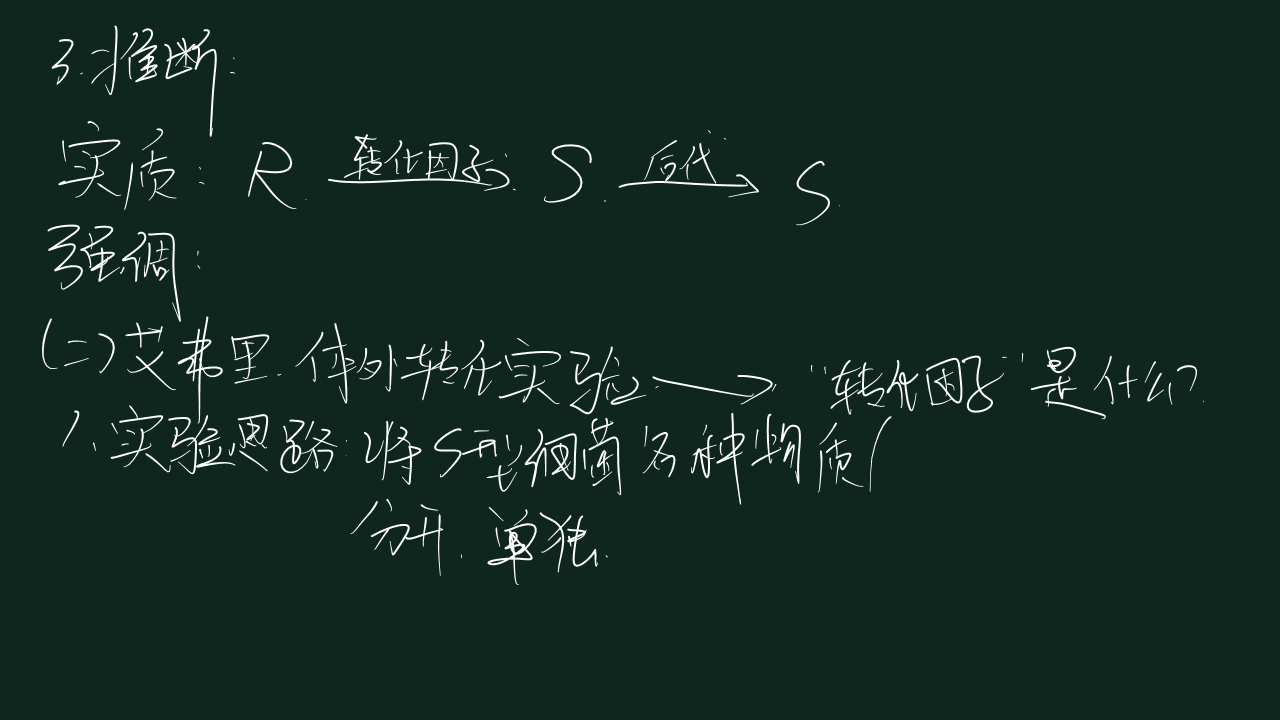 3.推断:
实质: R 转化因子→ S 后代→ S
强调:
(二)艾弗里.体外转化实验→“转化因子”是什么?
1、实验思路:将S型细菌各种物质(
分开.单独.